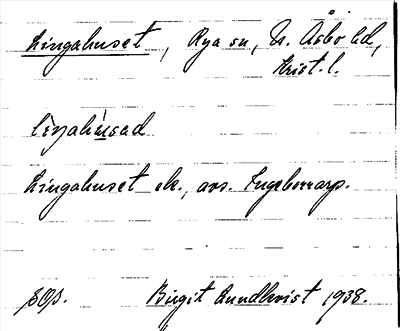 Lingahuset, Rya sn, N. Åsbo hd,
Krist. l.
lìŋahùsad
Lingahuset ek., avs. Ingeborrarp.
SOp. Birgit Lundkvist 1938.